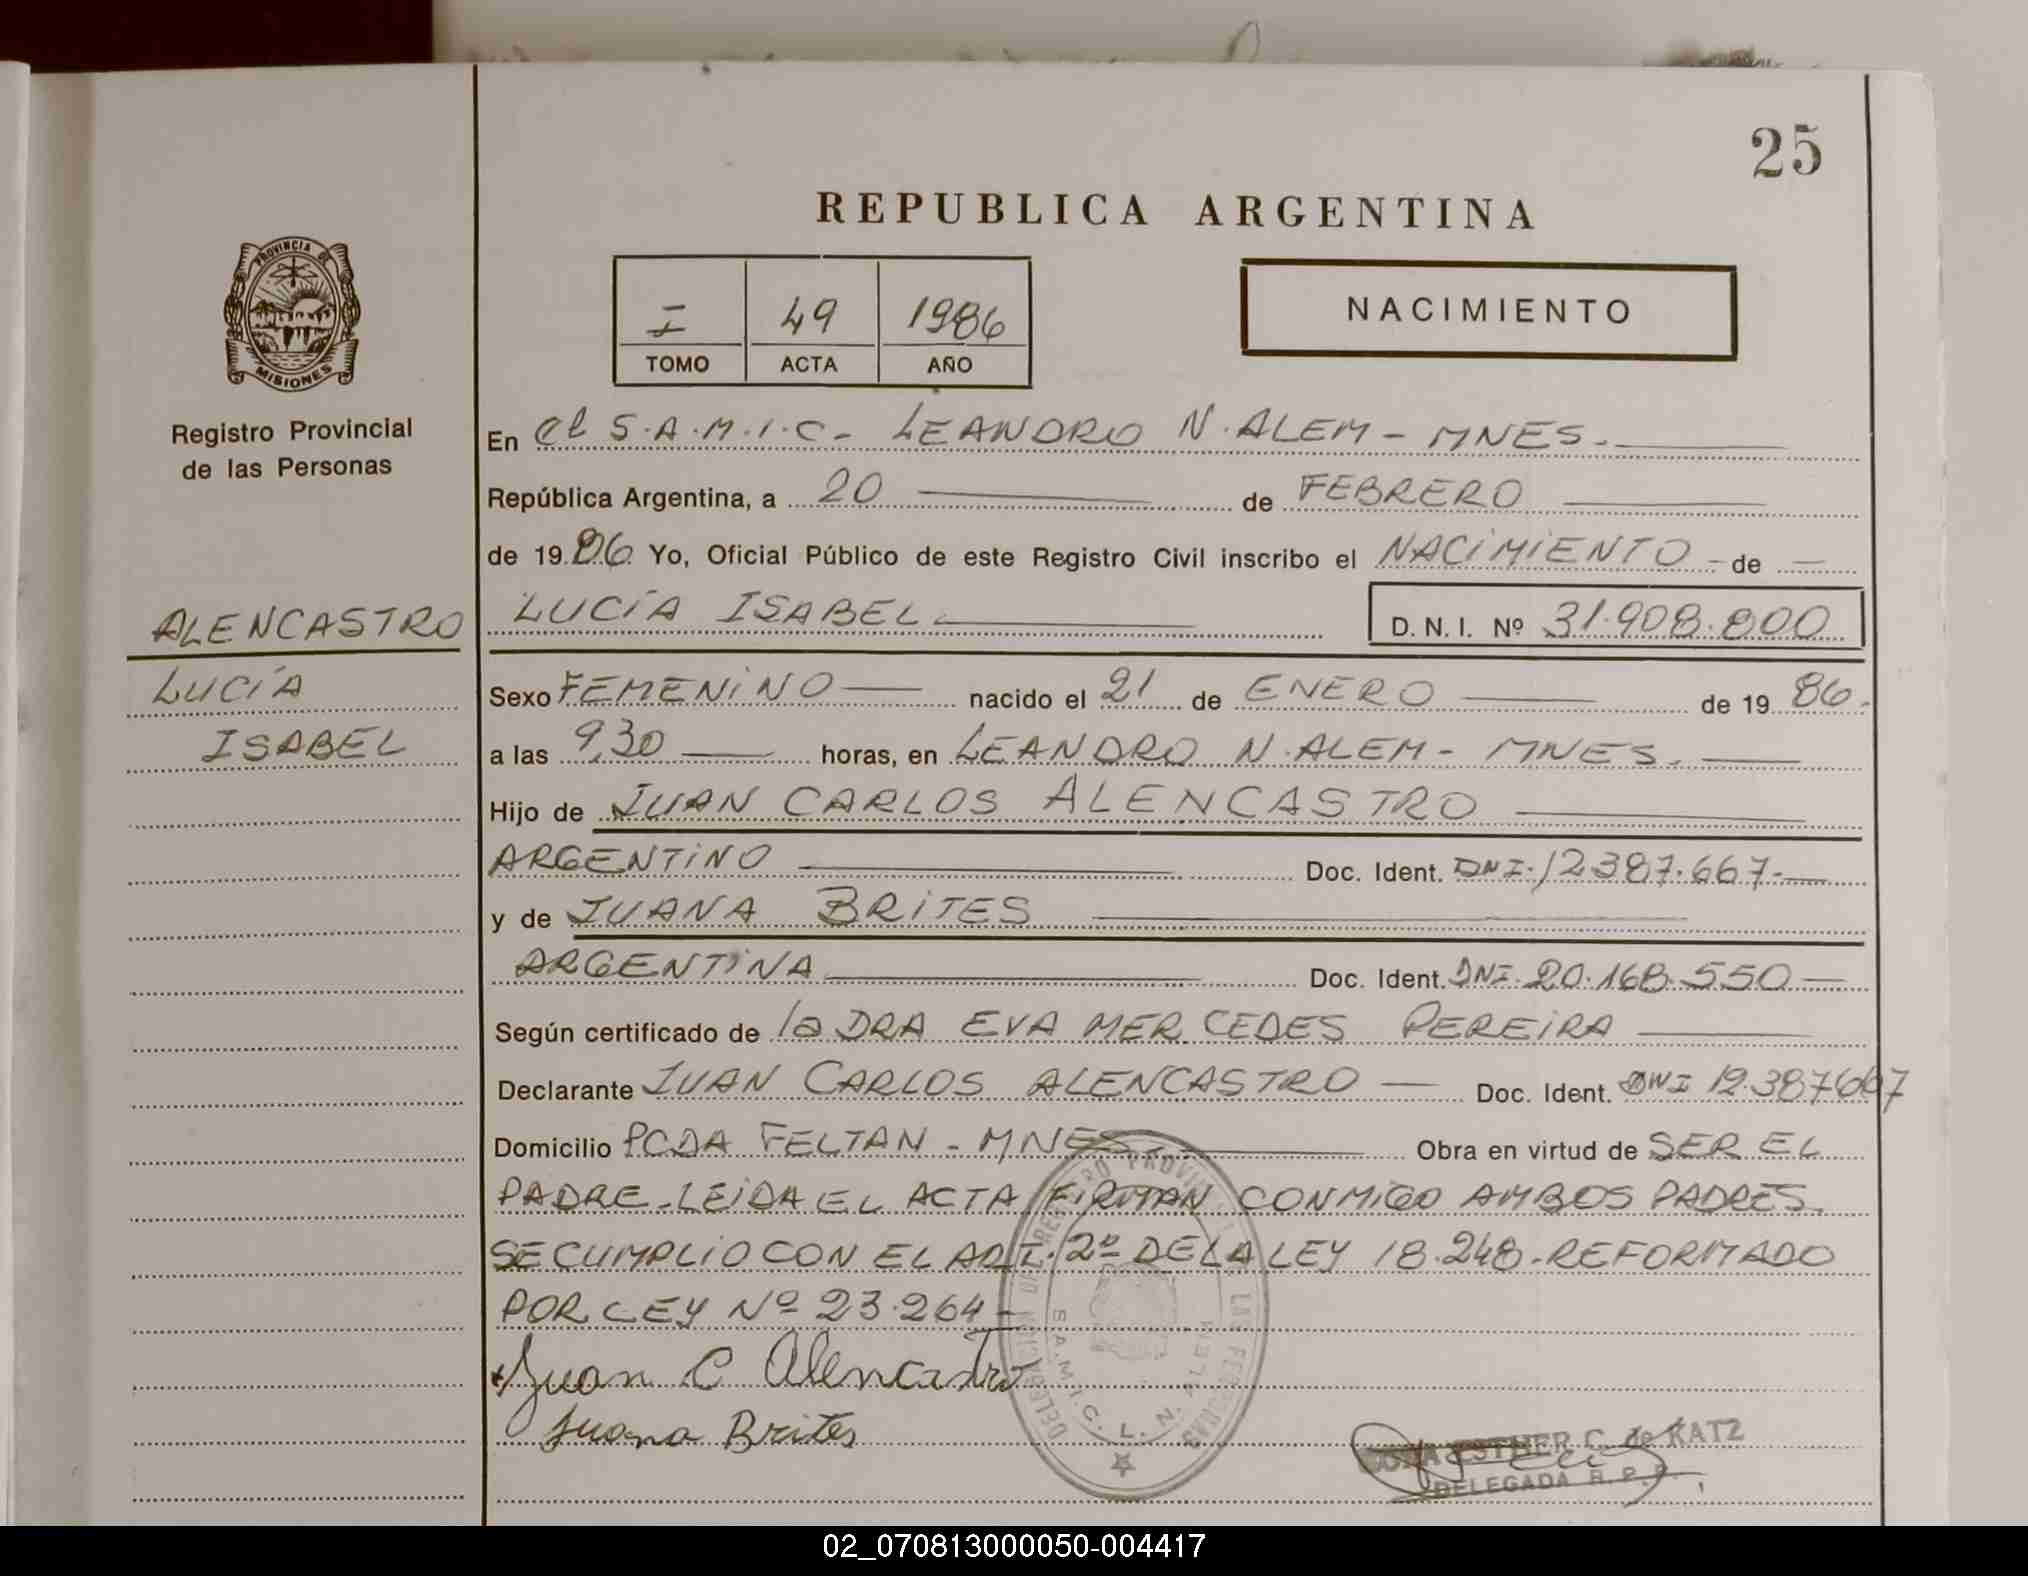 25
REPUBLICA ARGENTINA
I 49 1986
TOMO ACTA AÑO
NACIMIENTO
PROVINCIA DE
MISIONES
Registro Provincial
de las Personas
ALENCASTRO
LUCÍA
ISABEL
En el S.A.M.I.C- LEANDRO N. ALEM - MNES.
República Argentina, a 20 de FEBRERO
de 1986 Yo, Oficial Público de este Registro Civil inscribo el NACIMIENTO de
LUCÍA ISABEL D. N. I. Nº 31.908.800
Sexo FEMENINO nacido el 21 de ENERO de 1986.
a las 9,30 horas, en LEANDRO N. ALEM - MNES.
Hijo de JUAN CARLOS ALENCASTRO
ARGENTINO Doc. Ident. DNI. 12.387.667.-
y de JUANA BRITES
ARGENTINA Doc. Ident. DNI. 20.168.550
Según certificado de la DRA EVA MERCEDES PEREIRA
Declarante JUAN CARLOS ALENCASTRO Doc. Ident. DNI 12.387667
Domicilio PCDA FELTAN - MNES. Obra en virtud de SER EL
PADRE - LEIDA EL ACTA FIRMAN CONMIGO AMBOS PADRES.
SE CUMPLIO CON EL ART. 2º DE LA LEY 18.248 - REFORMADO
POR LEY Nº 23.264 -
Juan C Alencastro
Juana Brites
DELEGACION DEL REGISTRO PROVINCIAL DE LAS PERSONAS
S.A.M.I.C. L. N. ALEM
ESTHER C. de KATZ
DELEGADA R. P. P.
02_070813000050-004417